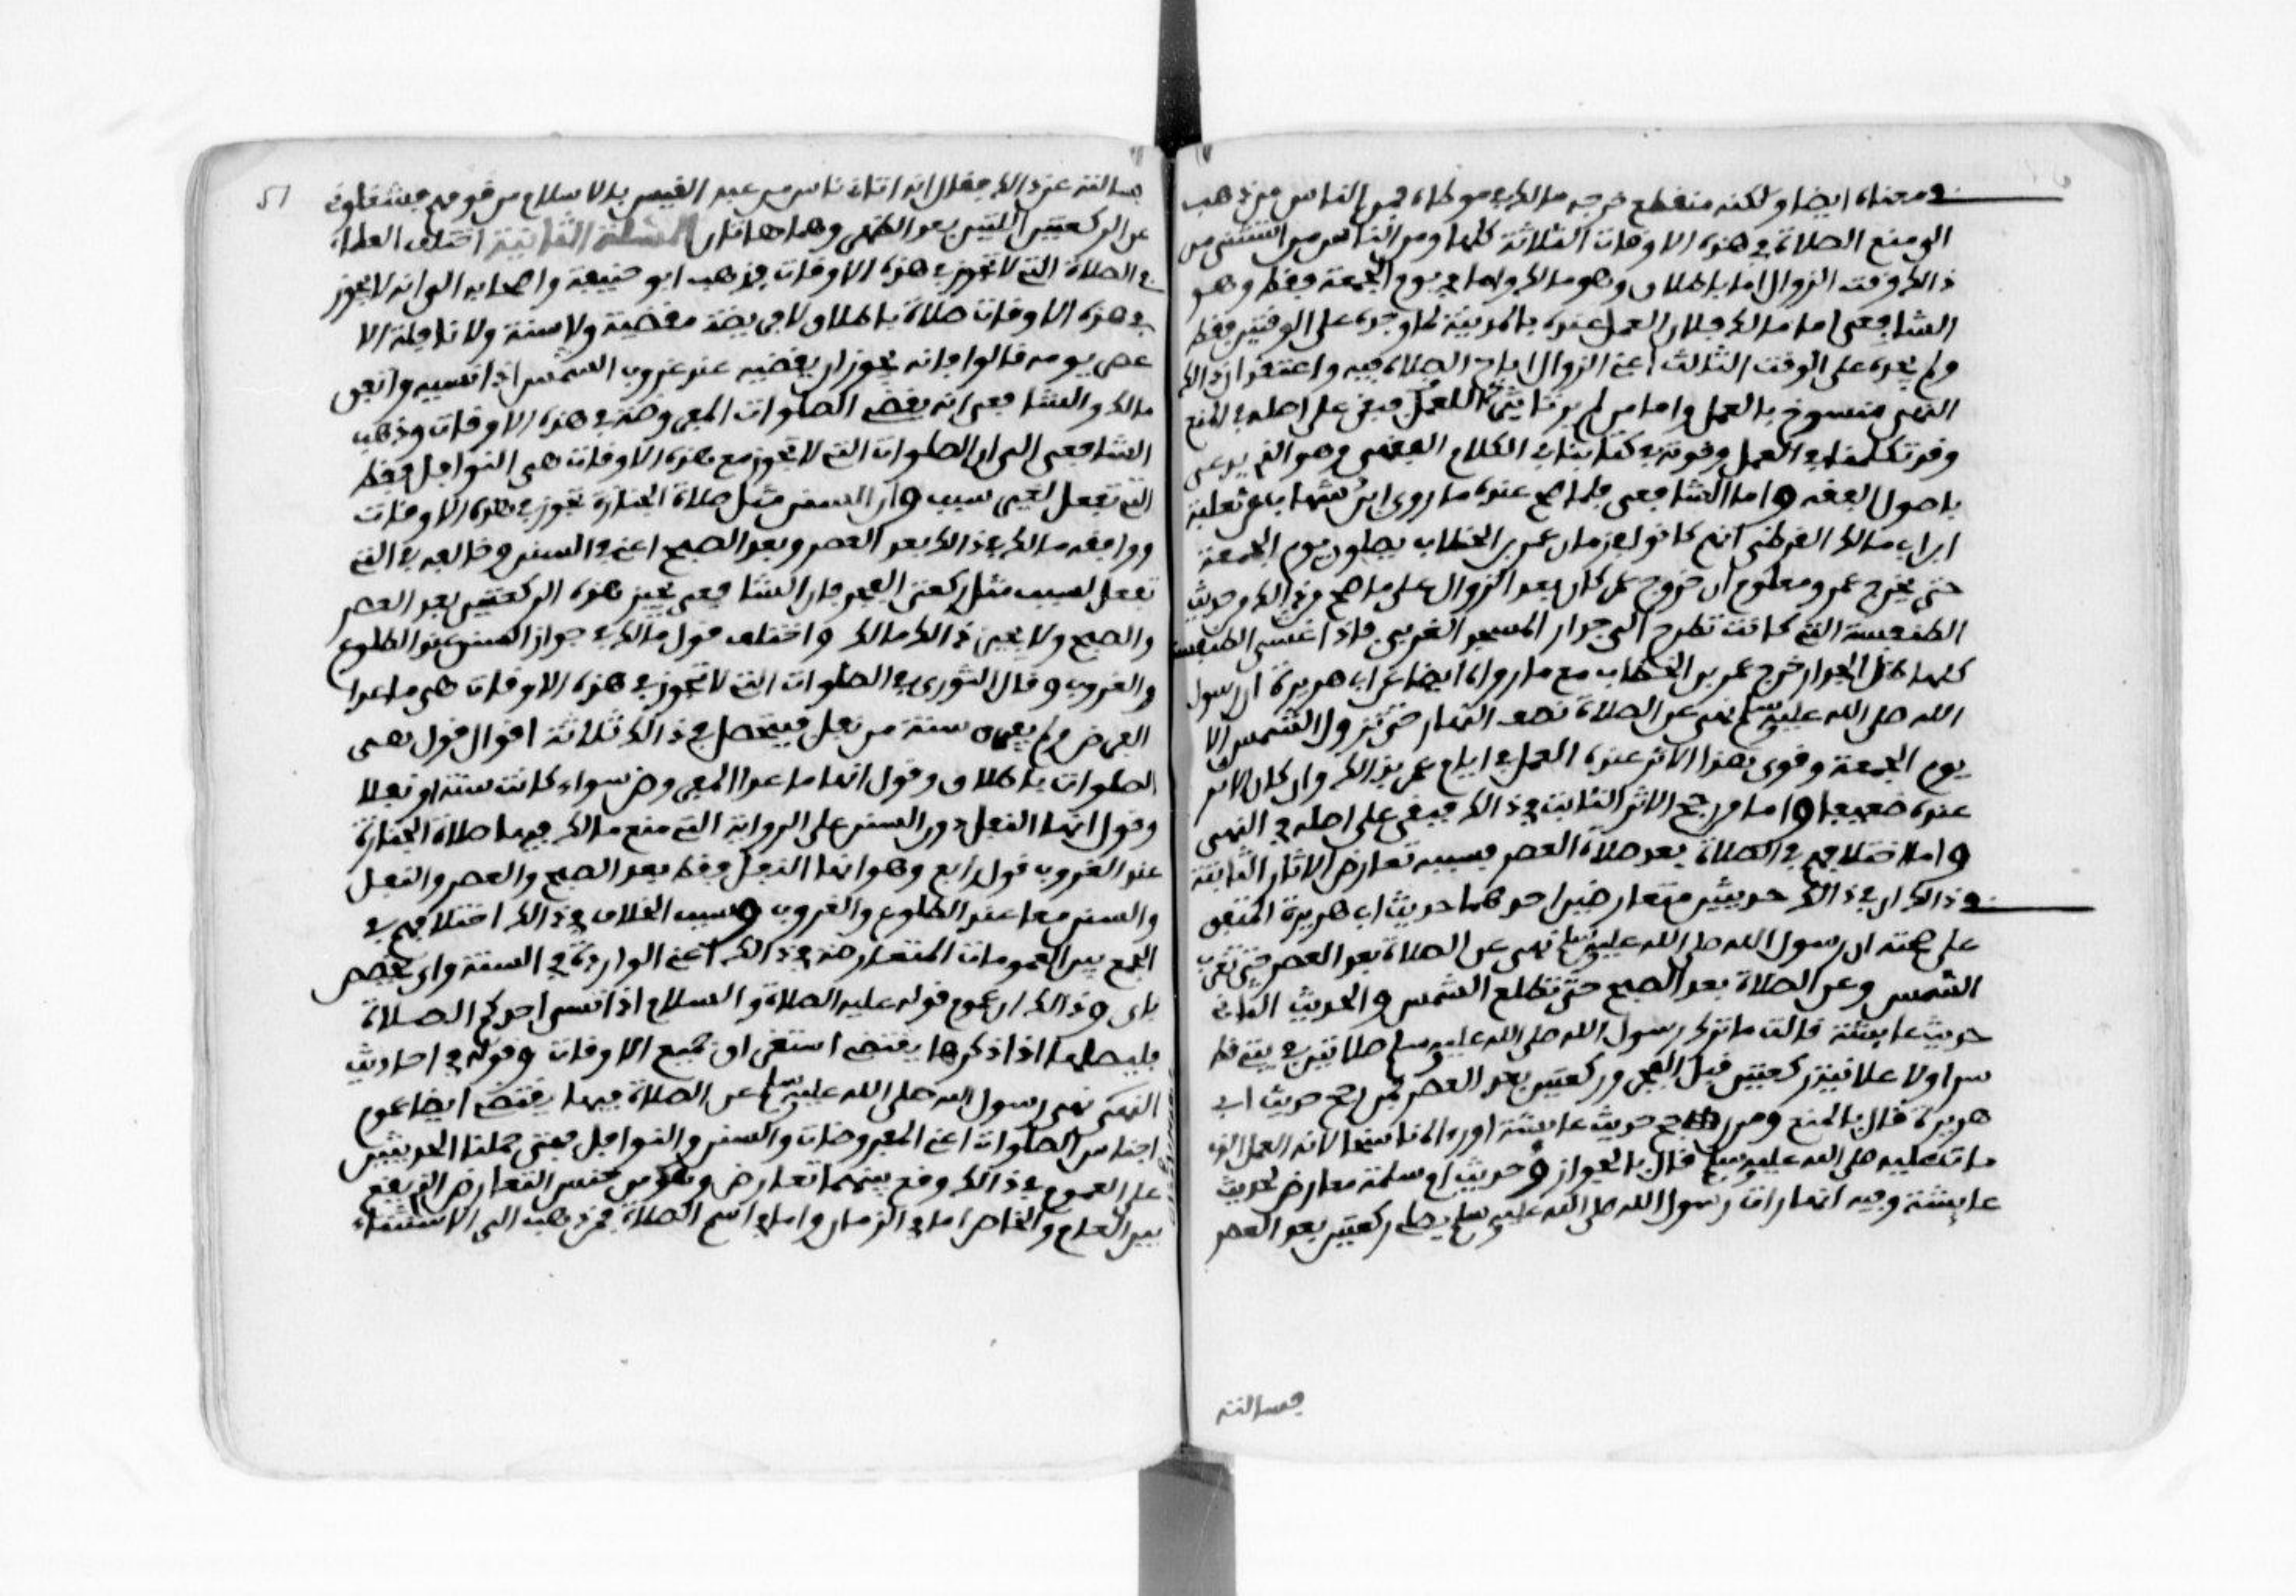 في معناه ايضا ولكنه منقطع خرجه مالك في موطاه فمن الناس من ذهب
الى منع الصلاة في هذه الاوقات الثلاثة كلها ومن الناس من استثنى من
ذالك وقت الزوال اما باطلاق وهو مالك واما في يوم الجمعة فقط وهو
الشافعي اما مالك فلان العمل عنده بالمدينة لما وجده على الوقتين فقط
ولم يجده على الوقت الثالث اعني الزوال اباح الصلاة فيه واعتقد ان ذالك
النهي منسوخ بالعمل واما من لم ير تاثيرا للعمل فبقي على اصله في المنع
وقد تكلمنا في العمل وقوته في كتابنا في الكلام الفقهي وهو الذي يدعى
باصول الفقه واما الشافعي فلما صح عنده ما روى ابن شهاب عن ثعلبة
ابن ابي مالك القرظي انهم كانوا في زمان عمر بن الخطاب يصلون يوم الجمعة
حتى يخرج عمر ومعلوم ان خروج عمر كان بعد الزوال على ما صح في ذالك وحديث
الطنفسة التي كانت تطرح الى جدار المسجد الغربي فاذا غشي الطنفسة
كلها ظل الجدار خرج عمر بن الخطاب مع ما رواه ايضا عن ابي هريرة ان رسول
الله صلى الله عليه وسلم نهى عن الصلاة نصف النهار حتى تزول الشمس الا
يوم الجمعة وقوى هذا الاثر عنده العمل في ايام عمر بذالك وان كان الاثر
عنده ضعيفا واما من رجح الاثر الثابت في ذالك فبقي على اصله في النهي
واما اختلافهم في الصلاة بعد صلاة العصر فسببه تعارض الاثار الثابتة
في ذالك ان في ذالك حديثين متعارضين احدهما حديث ابي هريرة المتفق
على صحته ان رسول الله صلى الله عليه وسلم نهى عن الصلاة بعد العصر حتى تغرب
الشمس وعن الصلاة بعد الصبح حتى تطلع الشمس والحديث الثاني
حديث عايشة قالت ما ترك رسول الله صلى الله عليه وسلم صلاتين في بيتي قط
سرا ولا علانية ركعتين قبل الفجر وركعتين بعد العصر فمن رجح حديث ابي
هريرة قال بالمنع ومن رجح حديث عايشة اوراه ناسخا لانه العمل الذي
مات عليه صلى الله عليه وسلم قال بالجواز وحديث ام سلمة معارض لحديث
عايشة وفيه انها رات رسول الله صلى الله عليه وسلم يصلي ركعتين بعد العصر
فسالته
51
فسالته عن ذالك فقال انه اتاني ناس من عبد القيس بالاسلام من قومهم فشغلوني
عن الركعتين اللتين بعد الظهر وهما هاتان المسئلة الثانية اختلف العلماء
في الصلاة التي لا تجوز في هذه الاوقات فذهب ابو حنيفة واصحابه الى انه لا يجوز
في هذه الاوقات صلاة باطلاق لا فريضة مقضية ولا سنة ولا نافلة الا
عصر يومه قالوا فانه يجوز ان يقضيه عند غروب الشمس اذا نسيه واتفق
مالك والشافعي انه يقضي الصلوات المفروضة في هذه الاوقات وذهب
الشافعي الى ان الصلوات التي لا تجوز مع هذه الاوقات هي النوافل فقط
التي تفعل لغير سبب وان السنن مثل صلاة الجنازة تجوز في هذه الاوقات
ووافقه مالك في ذالك بعد العصر وبعد الصبح اعني في السنن وخالفه في التي
تفعل لسبب مثل ركعتي الفجر فان الشافعي يجيز هذه الركعتين بعد العصر
والصبح ولا يجيز ذالك مالك واختلف قول مالك في جواز السنن عند الطلوع
والغروب وقال الثوري في الصلوات التي لا تجوز في هذه الاوقات هي ما عدا
الفرض ولم يفرق سنة من نفل فيتحصل في ذالك ثلاثة اقوال قول هي
الصلوات باطلاق وقول انها ما عدا المفروض سواء كانت سنة او نفلا
وقول انها النفل دون السنن وعلى الرواية التي منع مالك فيها صلاة الجنازة
عند الغروب قول رابع وهو انها النفل فقط بعد الصبح والعصر والنفل
والسنن معا عند الطلوع والغروب وسبب الخلاف في ذالك اختلافهم في
الجمع بين العمومات المتعارضة في ذالك اعني الواردة في السنة واي يخص
باي وذالك ان عموم قوله عليه الصلاة والسلام اذا نسي احدكم الصلاة
فليصلها اذا ذكرها يقتضي استغراق جميع الاوقات وقوله في احاديث
النهي نهى رسول الله صلى الله عليه وسلم عن الصلاة فيها يقتضي ايضا عموم
اجناس الصلوات اعني المفروضات والسنن والنوافل فمتى حملنا الحديثين
على العموم في ذالك وقع بينهما تعارض وهو من جنس التعارض الذي يقع
بين العام والخاص اما في الزمان واما في اسم الصلاة فمن ذهب الى الاستثناء